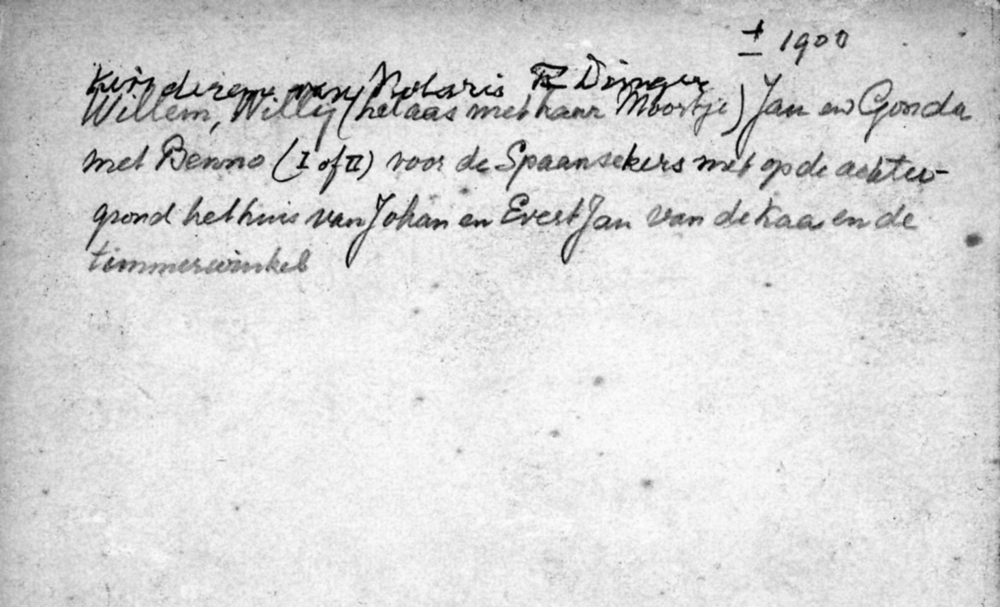 ± 1900
Kinderen van Notaris Dinger
Willem, Willy (helaas met haar Moortje) Jan en Gonda
met Benno (I of II) voor de Spaansekers met op de achter-
grond het huis van Johan en Evert Jan van de Kaa en de
timmerwinkel